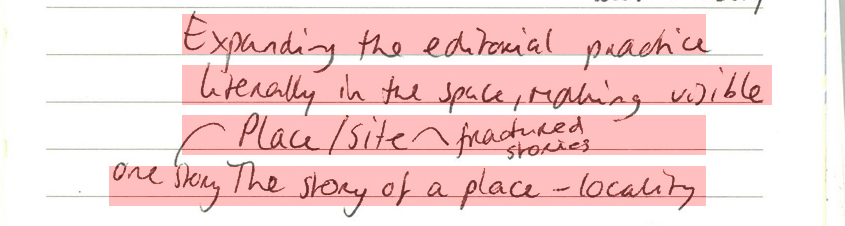 Expanding the editorial practice
literally in the space, making visible
Place / site fractured
stories
one story The story of a place - locality